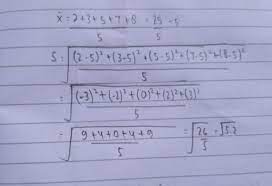 x̄ = 2+3+5+7+8 = 25 = 5
5 5
S = √((2-5)²+(3-5)²+(5-5)²+(7-5)²+(8-5)²
5
= √((-3)²+(-2)²+(0)²+(2)²+(3)²
5
= √(9+4+0+4+9 = √(26 = √5.2
5 5